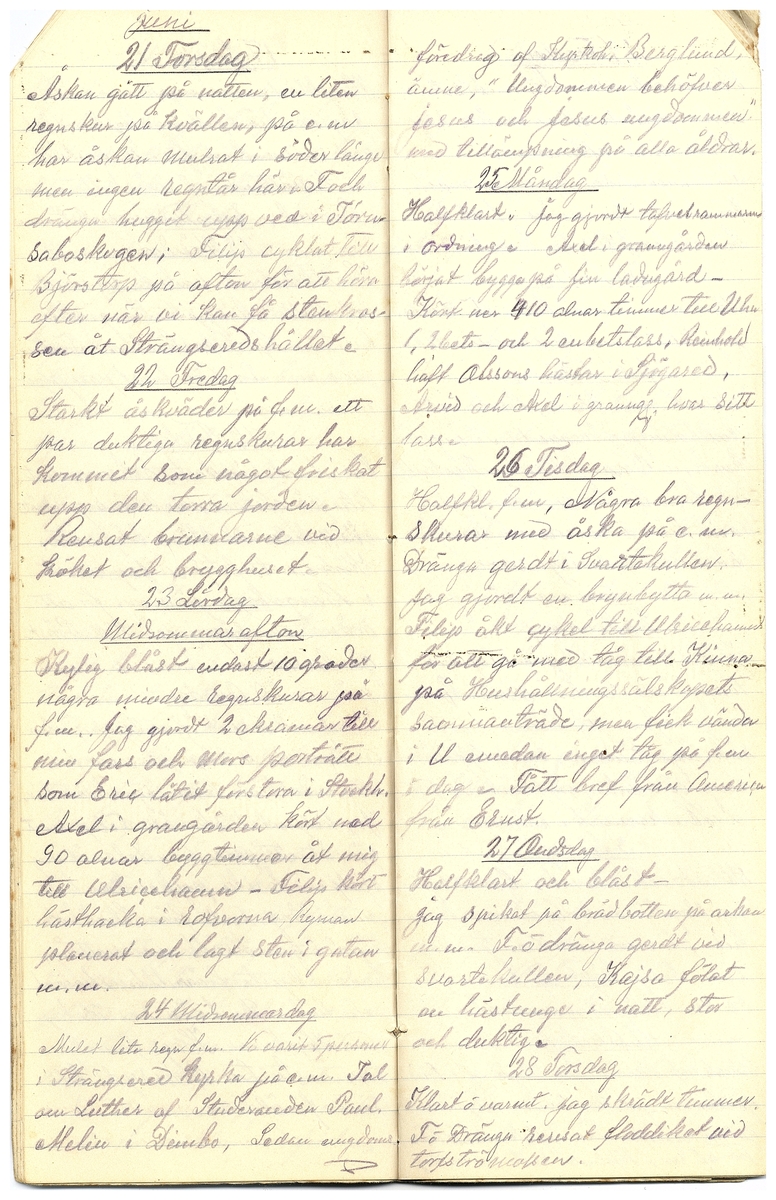 Juni
21 Torsdag
Åskan gått på natten, en liten
regnskur på kvällen, på e.m
har åskan mulrat i söder länge
men ingen regntår här. F och
dränga hugget upp ved i Törn-
saboskogen; Filip cyklat till
Björstorp på afton för att höra
efter när vi kan få stenkros-
sen åt Strängseredshållet.
22 Fredag
Starkt åskväder på f.m. ett
par duktiga regnskurar har
kommet som något friskat
upp den torra jorden.
Rensat brunnarne vid
köket och brygghuset.
23 Lördag
Midsommarafton
Kylig blåst endast 10 grader
några mindre regnskurar på
f.m.. Jag gjordt 2 ramar till
min fars och mors porträtt
som Eric låtit förstora i Stockh.
Axel i grangården kört ned
90 alnar byggtimmer åt mig
till Ulricehamn – Filip kört
hästhacka i rofvorna Ryman
planerat och lagt sten i gatan
m.m.
24 Midsommardag
Mulet lite regn f.m. Vi varit 5 personer
i Strängsered kyrka på e.m. Tal
om Luther af Studeranden Paul
Melin i Dimbo, Sedan ungdoms
föredrag af Kyrkoh. Berglund,
ämne, "Ungdommen behöfver
Jesus och Jesus ungdommen"
med tillämpning på alla åldrar.
25 Måndag
Halfklart. Jag gjordt tafvelramarna
i ordning. Axel i grangården
börjat bygga på sin ladugård –
Kört ner 410 alnar timmer till Uhn
1, 2bets – och 2 enbetslass, Reinhold
haft Olssons hästar i Sjögared,
Arvid och Axel i grangg. hvar sitt
lass.
26 Tisdag
Halfkl. f.m, Några bra regn-
skurar med åska på e.m.
Dränga gerdt i Svartekullen.
Jag gjordt en brynbytta m.m.
Filip åkt cykel till Ulricehamn
för att gå med tåg till Kinna
på Hushållningssälskapets
sammanträde, men fick vända
i U emedan inget tåg på f.m
i dag – Fått bref från America
från Ernst.
27 Onsdag
Halfklart och blåst –
jag spikat på brädbotten på arkan
m.m. F. ö dränga gerdt vid
svartekullen, Kajsa fölat
en hästunge i natt, stor
och duktig.
28 Torsdag
Klart ö varmt. jag skrädt timmer.
F ö Dränga rensat floddiket vid
torfströmossen.